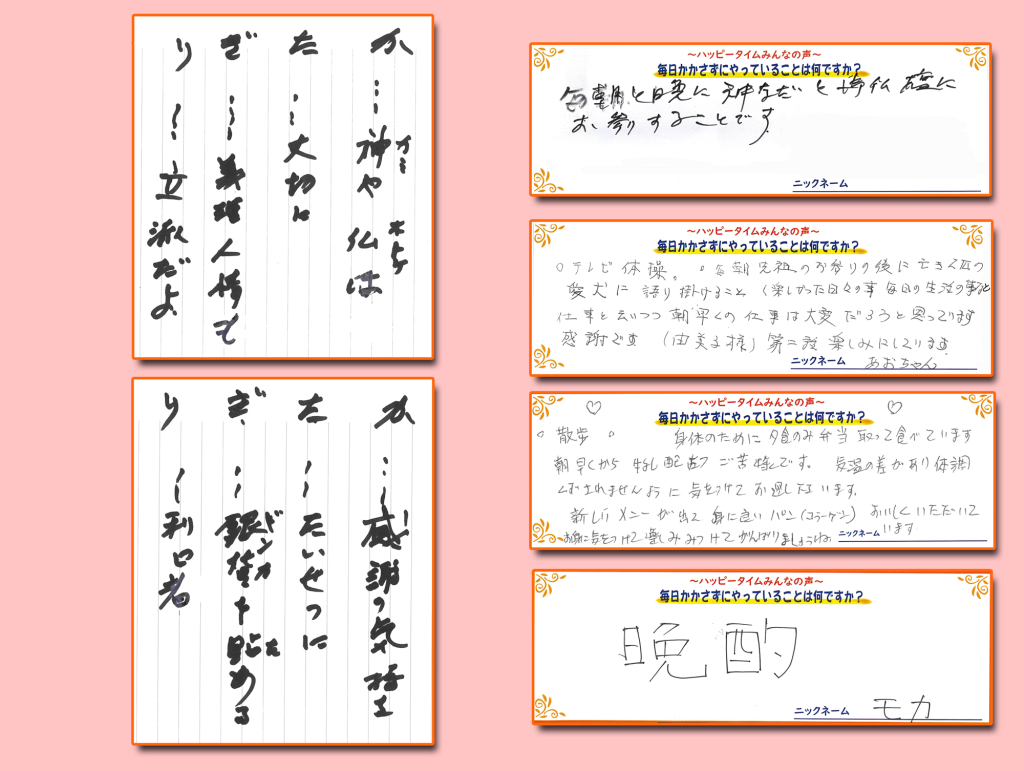 か…神や仏は
イミ
ホトケ
た…大切に
ぎ…義理人情も
り…立派だよ
か…感謝の気持ち
た…たいせつに
ぎ…銀貨も貯める
り…利口者
～ハッピータイムみんなの声～
毎日かかさずにやっていることは何ですか？
毎朝と晩に神なだいと 仏壇に
お参りすることです。
ニックネーム
～ハッピータイムみんなの声～
毎日かかさずにやっていることは何ですか？
○テレビ体操。 ○毎朝先祖のお参りの後に亡き2匹の
愛犬に語り掛けること（楽しかった日々の事毎日の生活の事など
仕事と云いつつ朝早くの仕事は大変だろうと思っています
感謝です（由美子様）第二段楽しみにしています。
ニックネーム あおちゃん
～ハッピータイムみんなの声～
毎日かかさずにやっていることは何ですか？
○散歩 ○ 身体のために夕食のみ弁当取って食べています
朝早くから 配達ご苦様です。気温の差があり体調
くずされませんように気をつけてお過し下さいます。
新しいメニューが出て身に良いパン（コラーゲン）おいしくいただいて
います
お身に気をつけて楽しみみつけてがんばりましょうね
ニックネーム
～ハッピータイムみんなの声～
毎日かかさずにやっていることは何ですか？
晩酌
ニックネーム モカ